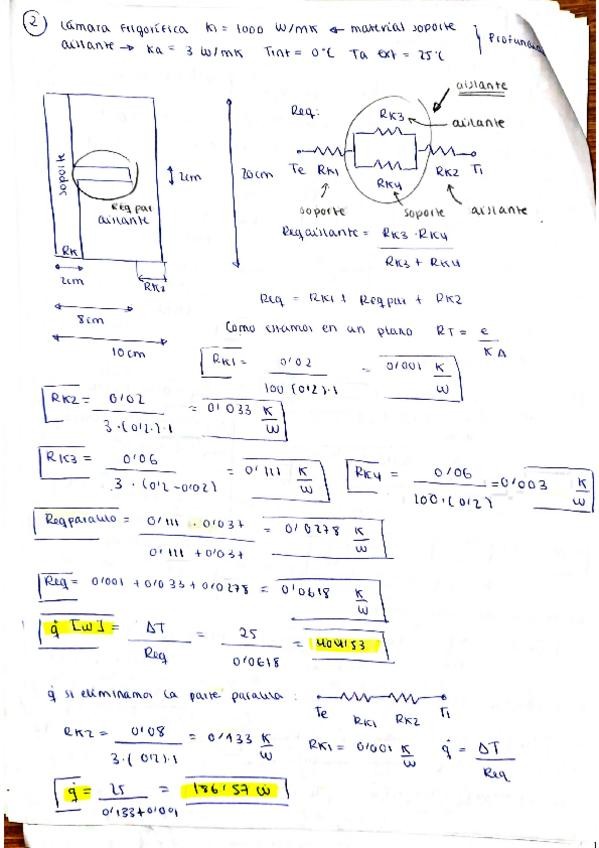 2) Cámara frigorífica K1 = 1000 W/mK ← material soporte
aislante → Ka = 3 W/mK Tint = 0°C Ta ext = 25°C } Profundidad
Req:
aislante
RK3
aislante
soporte
2cm
20cm
Te RK1
RK4
RK2 Ti
Req par
aislante
soporte
soporte
aislante
RK1
RK2
2cm
8cm
10cm
Req aislante = RK3 · RK4 / RK3 + RK4
Req = RK1 + Reqpar + RK2
Como estamos en un plano RT = e / KA
RK1 = 0'02 / 100 (0'2)·1 = 0'001 K/W
RK2 = 0'02 / 3·(0'2)·1 = 0'033 K/W
RK3 = 0'06 / 3·(0'2 - 0'02) = 0'111 K/W
RK4 = 0'06 / 100·(0'2) = 0'003 K/W
Req paralelo = 0'111 · 0'037 / 0'111 + 0'037 = 0'0278 K/W
Req = 0'001 + 0'033 + 0'0278 = 0'0618 K/W
q̇ [W] = ΔT / Req = 25 / 0'0618 = 404'53
q̇ si eliminamos la parte paralela:
Te RK1 RK2 Ti
RK2 = 0'08 / 3·(0'2)·1 = 0'133 K/W
RK1 = 0'001 K/W q̇ = ΔT / Req
q̇ = 25 / 0'133 + 0'001 = 186'57 W